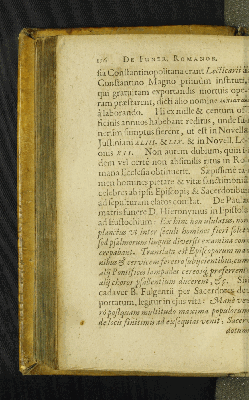 116 DE FUNER. ROMANOR.
sia Constantinopolitana erant Lecticarii à
Constantino Magno primùm instituti,
qui gratuitam exportandis mortuis ope-
ram præstarent, dicti alio nomine
à laborando. Hi ex mille & centum of-
ficinis annuos habebant reditus, unde fu-
nerum sumptus fierent, ut est in Novella
Justiniani XLIII. & LIX. & in Novell. Le-
onis XII. Non autem dubium, quin ea-
dem vel certè non absimilis ritus in Ro-
mana Ecclesia obtinuerit. Sæpissimè ta-
men homines pietate & vitæ sanctimoniâ
celebres ab ipsis Episcopis & Sacerdotibus
ad sepulturam elatos constat. De Paulæ
matris funere D. Hieronymus in Epistola
ad Eustochium: Ex hinc non ululatus, non
planctus ut inter seculi homines fieri solet,
sed psalmorum linguis diversis examina con-
crepabant. Translata est Episcoporum ma-
nibus & cervicem feretro subjicientibus, cum
alii Pontifices lampadas cereosq; præferrent,
alii choros psallentium ducerent, &c. Sic
cadaver B. Fulgentii per Sacerdotes de-
portatum, legitur in ejus vita: Manè ve-
rò postquam multitudo maxima populorum
de locis finitimis ad exsequias venit, Sacer-
dotum